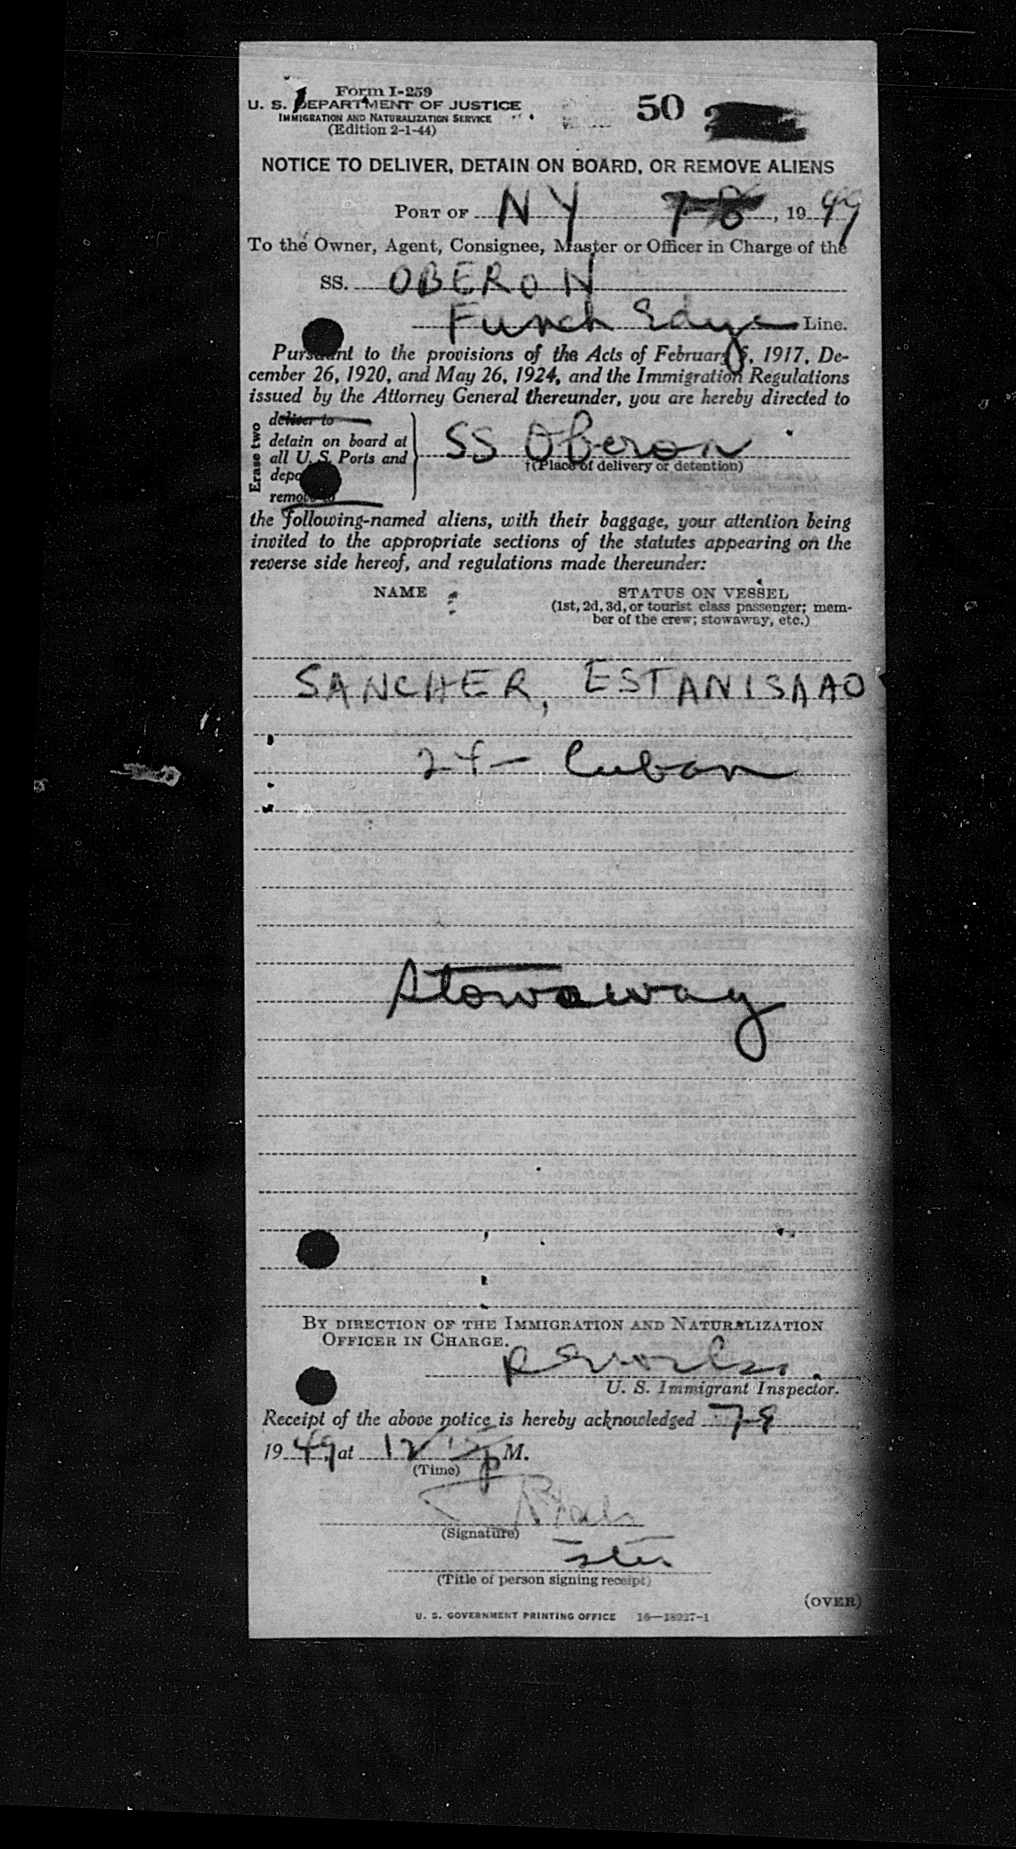 Form I-259
U. S. DEPARTMENT OF JUSTICE
IMMIGRATION AND NATURALIZATION SERVICE
(Edition 2-1-44)
50
NOTICE TO DELIVER, DETAIN ON BOARD, OR REMOVE ALIENS
PORT OF NY 7-8, 1949
To the Owner, Agent, Consignee, Master or Officer in Charge of the
SS. OBERON
Funch Edye Line.
Pursuant to the provisions of the Acts of February 5, 1917, De-
cember 26, 1920, and May 26, 1924, and the Immigration Regulations
issued by the Attorney General thereunder, you are hereby directed to
Erase two
deliver to
detain on board at
all U. S. Ports and
remove to
SS Oberon
†(Place of delivery or detention)
the following-named aliens, with their baggage, your attention being
invited to the appropriate sections of the statutes appearing on the
reverse side hereof, and regulations made thereunder:
NAME
STATUS ON VESSEL
(1st, 2d, 3d, or tourist class passenger; mem-
ber of the crew; stowaway, etc.)
SANCHER, ESTANISAAO
24 - Cuban
Stowaway
BY DIRECTION OF THE IMMIGRATION AND NATURALIZATION
OFFICER IN CHARGE.
U. S. Immigrant Inspector.
Receipt of the above notice is hereby acknowledged 7-8
1949, at 12 M.
(Time)
(Signature)
(Title of person signing receipt)
(OVER)
U. S. GOVERNMENT PRINTING OFFICE 16—18227-1